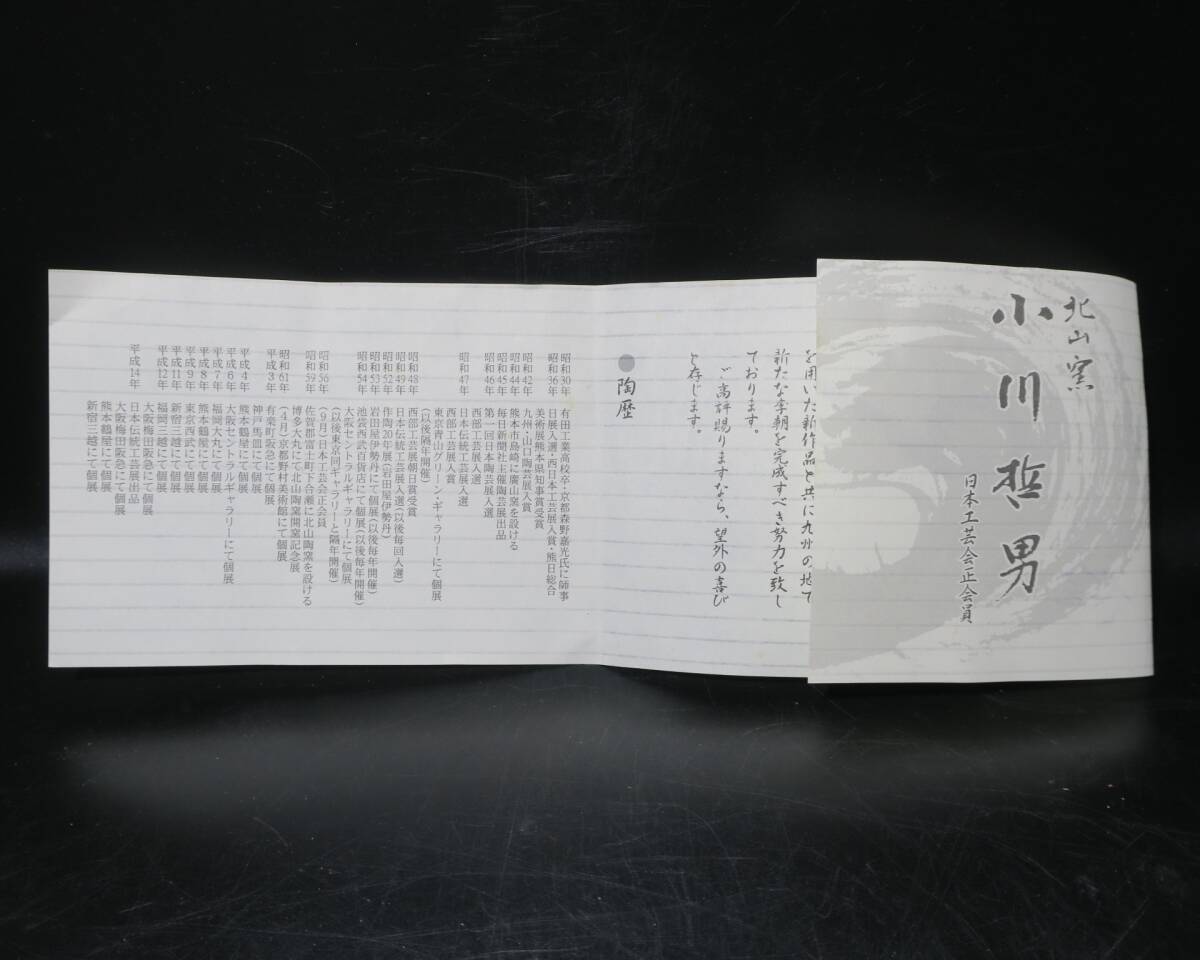 北山窯
小川哲男
日本工芸会正会員
を用いた新作品と共に九州の地で
新たな李朝を完成すべき努力を致し
ております。
ご高評賜りますなら、望外の喜び
と存じます。
●陶歴
昭和30年 有田工業高校卒・京都森野嘉光氏に師事
昭和36年 日展入選・西日本工芸展入賞・熊日総合
美術展熊本県知事賞受賞
昭和42年 九州・山口陶芸展入賞
昭和44年 熊本市島崎に廣山窯を設ける
昭和45年 毎日新聞社主催陶芸展出品
昭和46年 第一回日本陶芸展入選
西部工芸展入選
昭和47年 日本伝統工芸展入選
西部工芸展入賞
東京青山グリーン・ギャラリーにて個展
(以後隔年開催)
昭和48年 西部工芸展朝日賞受賞
昭和49年 日本伝統工芸展入選(以後毎回入選)
昭和52年 作陶20年展(岩田屋伊勢丹)
昭和53年 岩田屋伊勢丹にて個展(以後毎年開催)
昭和54年 池袋西武百貨店にて個展(以後毎年開催)
大阪セントラルギャラリーにて個展
(以後東京同ギャラリーと隔年開催)
昭和56年 (9月)日本工芸会正会員
昭和59年 佐賀郡富士町下合瀬に北山陶窯を設ける
博多大丸にて北山陶窯開窯記念展
昭和61年 (4月)京都野村美術館にて個展
平成3年 有楽町阪急にて個展
神戸馬郡にて個展
平成4年 熊本鶴屋にて個展
平成6年 大阪セントラルギャラリーにて個展
平成7年 福岡大丸にて個展
平成8年 熊本鶴屋にて個展
平成9年 東京西武にて個展
平成11年 新宿三越にて個展
平成12年 福岡三越にて個展
大阪梅田阪急にて個展
平成14年 日本伝統工芸展出品
大阪梅田阪急にて個展
熊本鶴屋にて個展
新宿三越にて個展